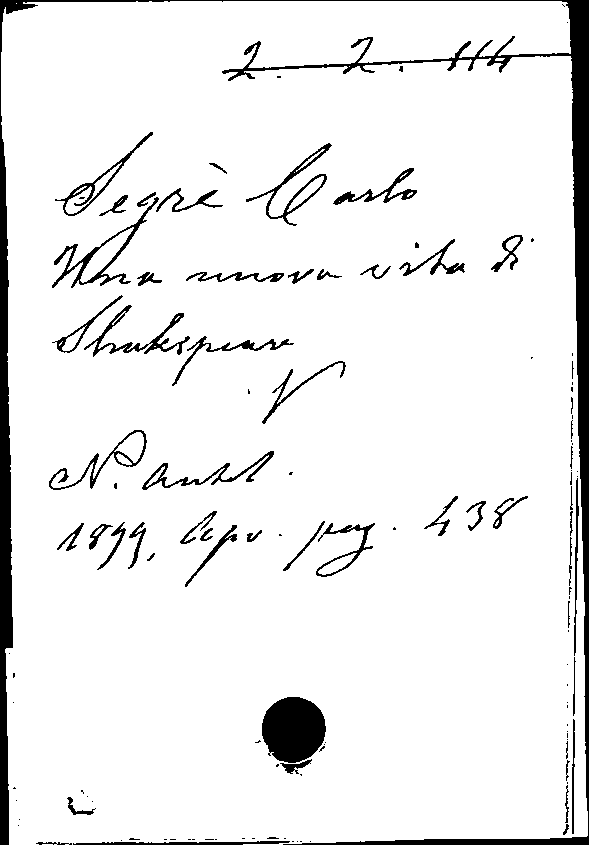 2. 2. 114
Segrè Carlo
Una nuova vita di
Shakespeare
V
N. Antol.
1899, Apr. pag. 438